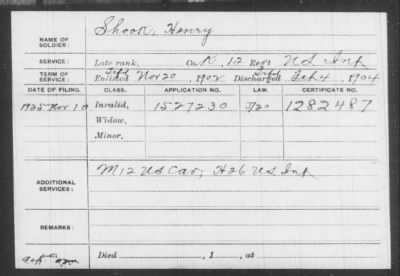 NAME OF SOLDIER: Shook, Henry
SERVICE: Late rank, Co. K, 12 Regt US Inf
TERM OF SERVICE: Enlisted Nov 20, 1902 Discharged Feb 4, 1904
DATE OF FILING. CLASS. APPLICATION NO. LAW. CERTIFICATE NO.
1925 Nov 10 Invalid, 1527230 1282487
Widow,
Minor,
ADDITIONAL SERVICES: M 12 US Cav; H 26 US Inf
REMARKS:
Died , 1 , at